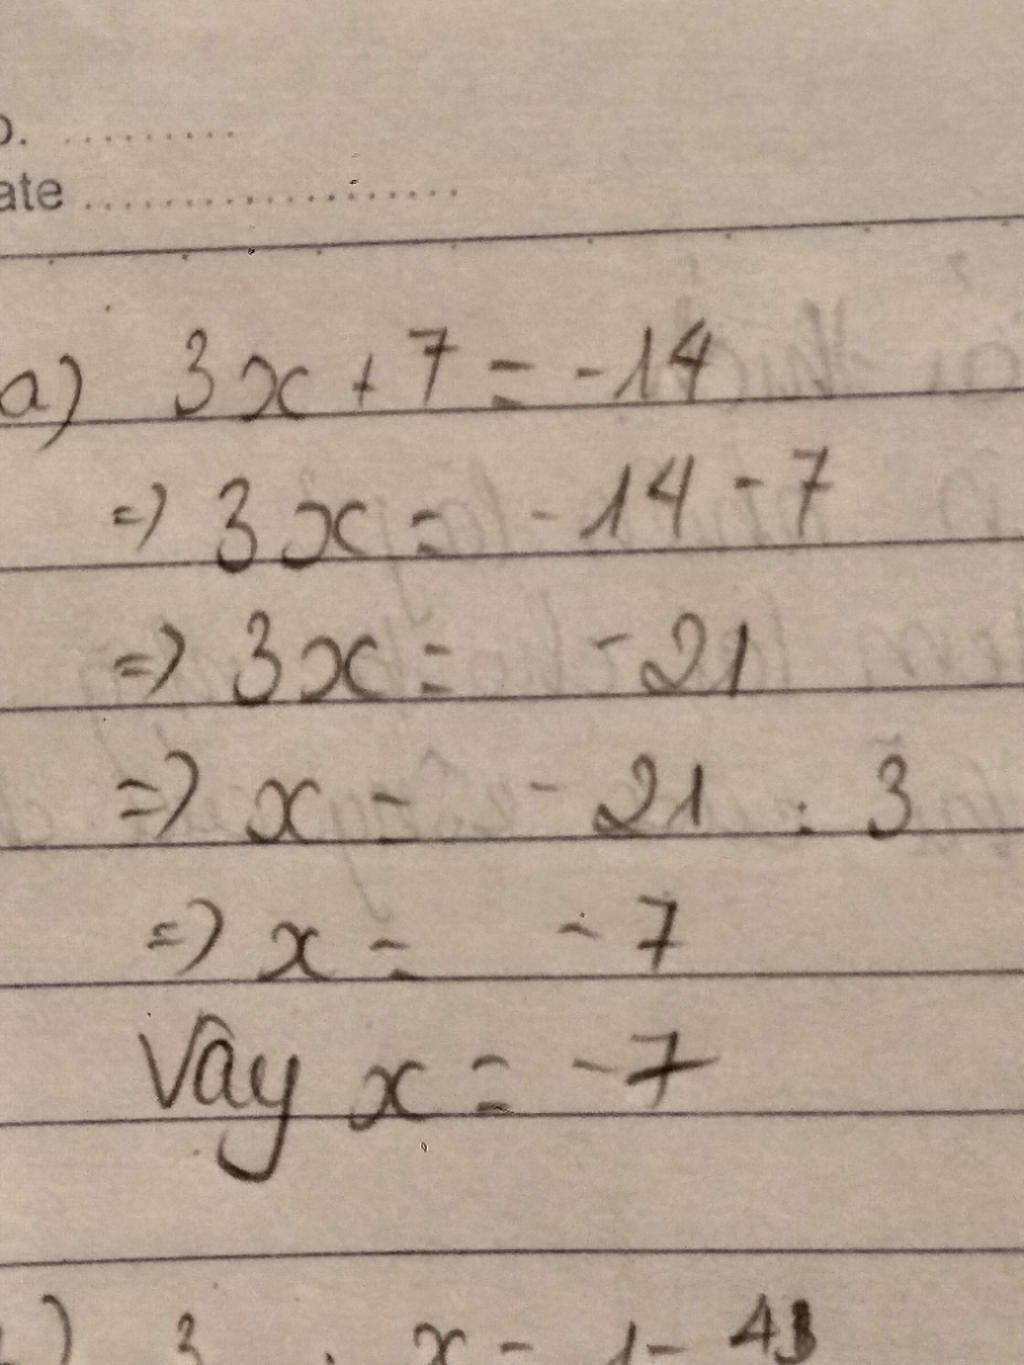 ate ....................
a) 3x + 7 = -14
=> 3x = -14 - 7
=> 3x = -21
=> x = -21 : 3
=> x = -7
Vậy x = -7